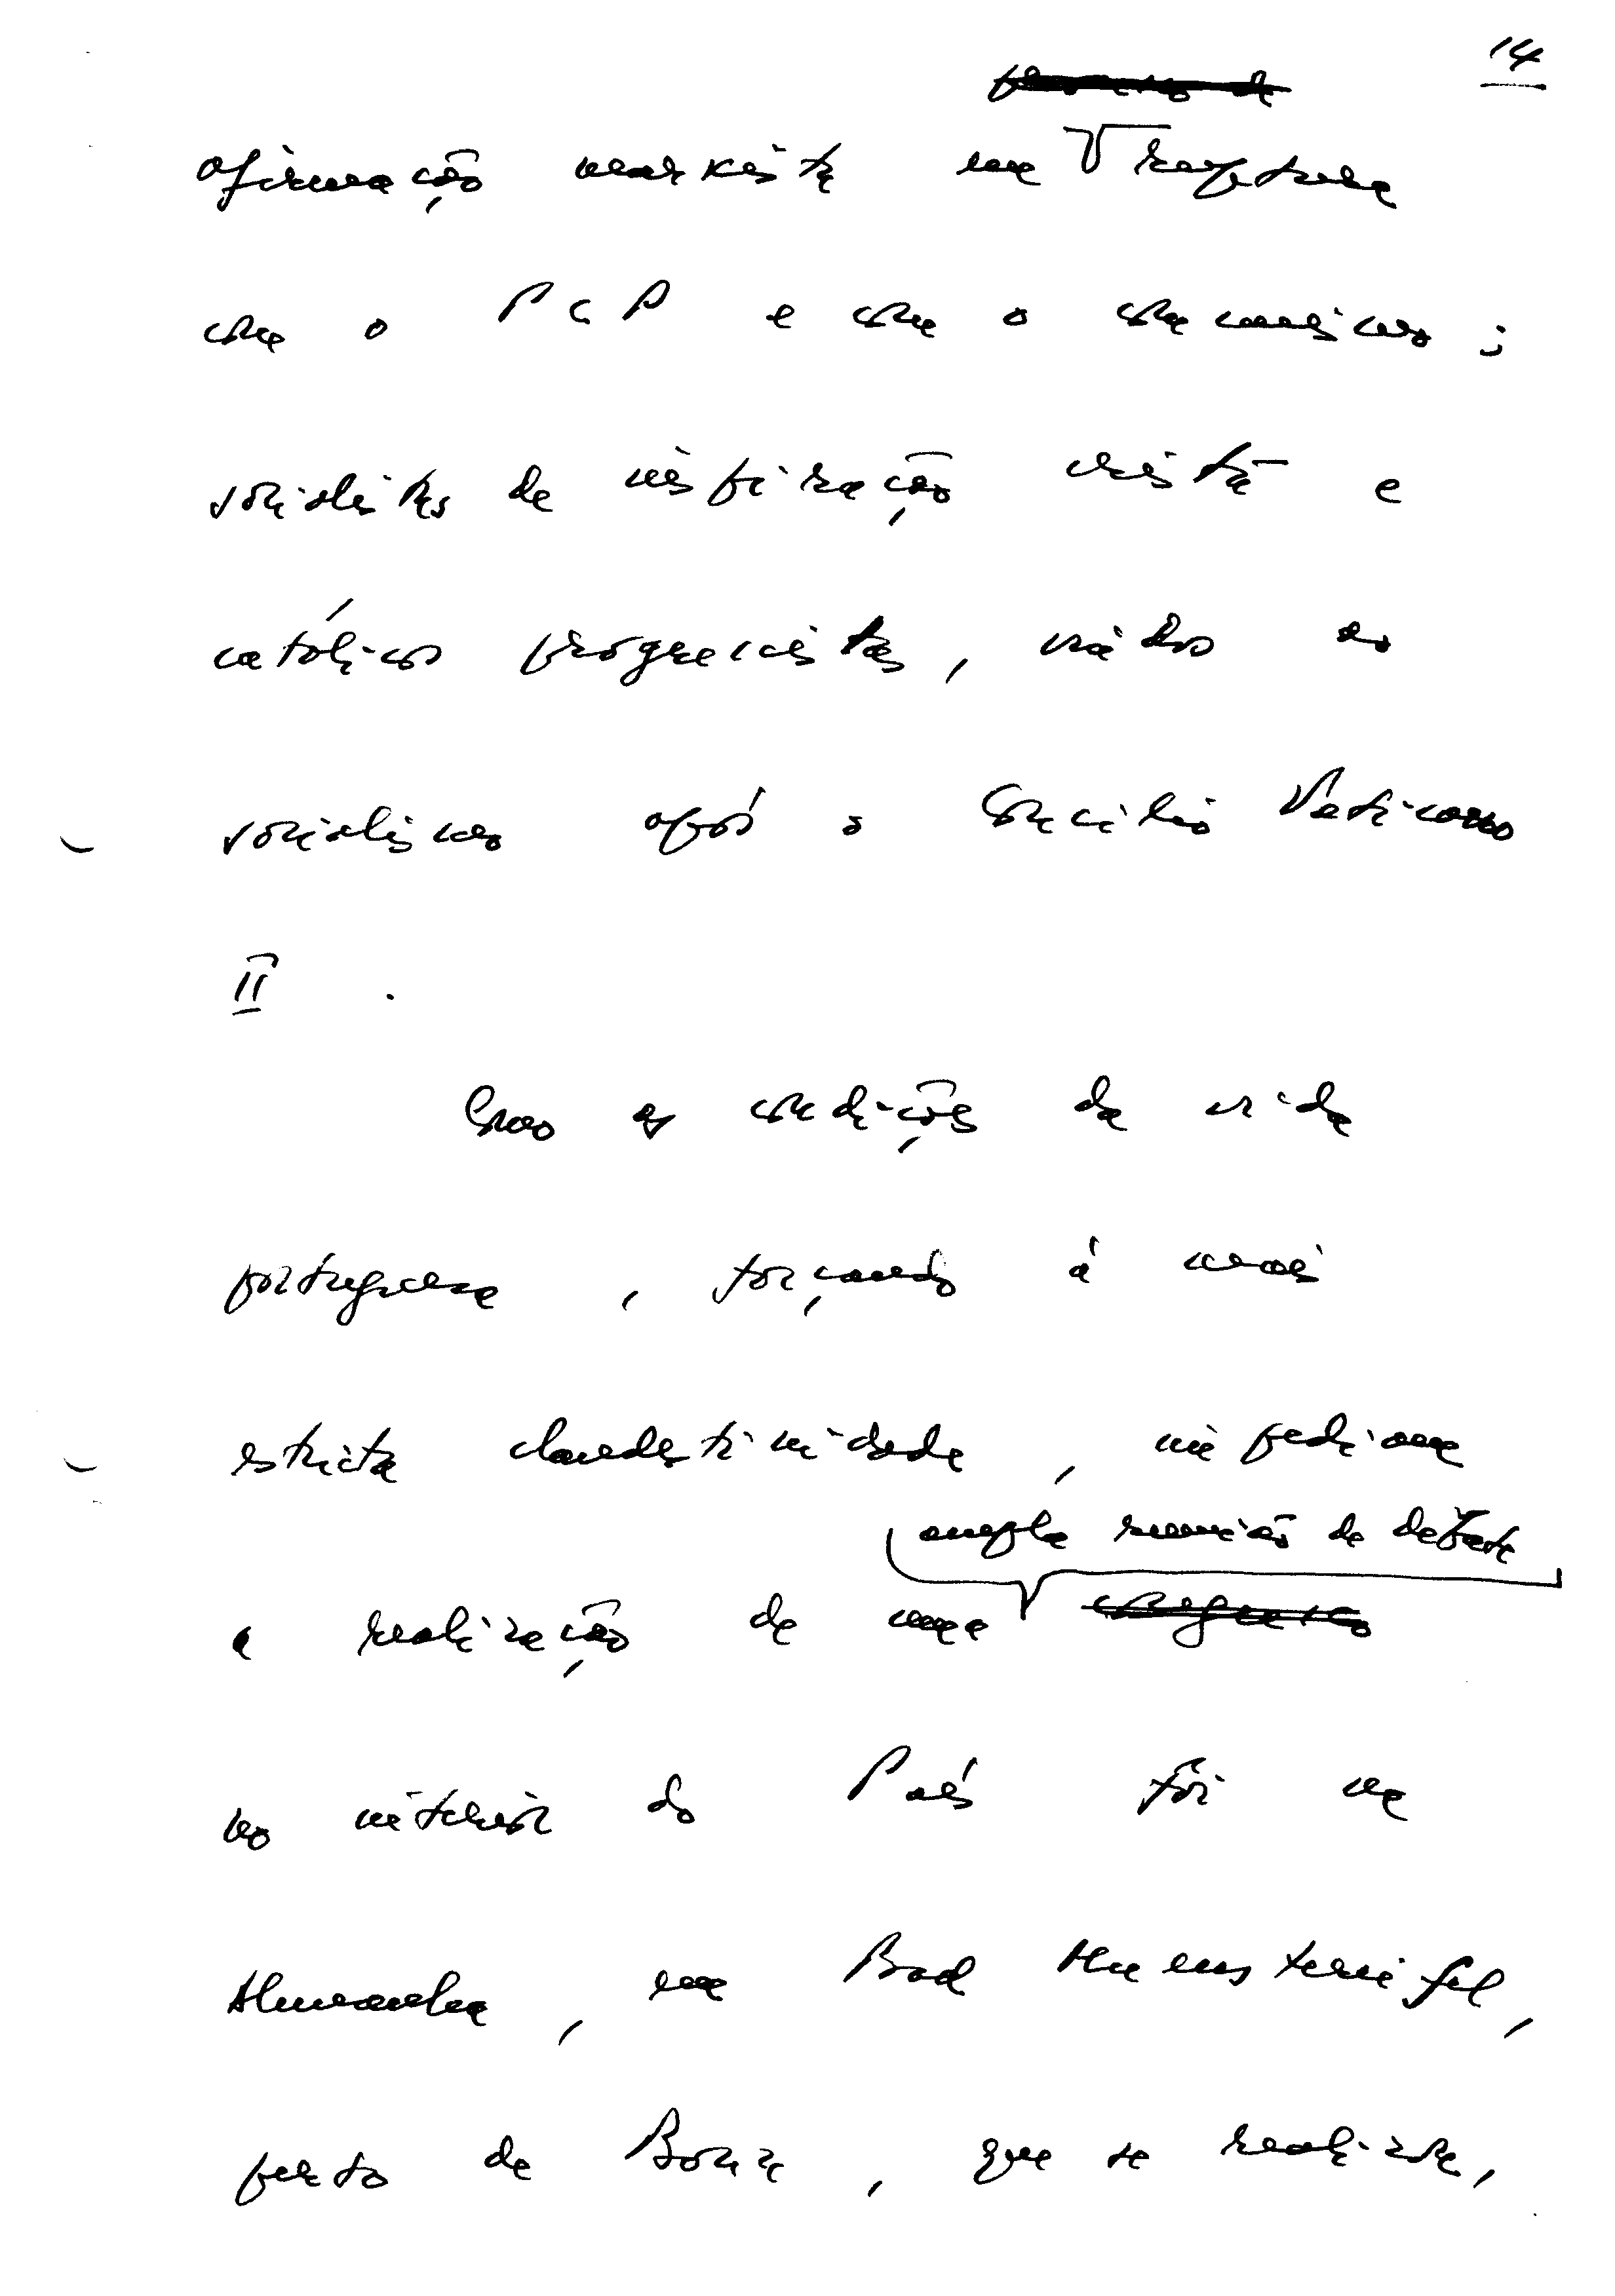 14
afirmação marxista em ruptura
com o PCP e com o comunismo;
socialistas de inspiração cristã e
católicos progressistas, vindos ao
socialismo após o Concílio Vaticano
II.
Como as condições da vida
portuguesa, forçando à mais
estricta clandestinidade, impediam
ampla reunião de debate
a realização de uma congresso
no interior do País foi na
Alemanha, em Bad Muenstereifel,
perto de Bona, que se realizou,